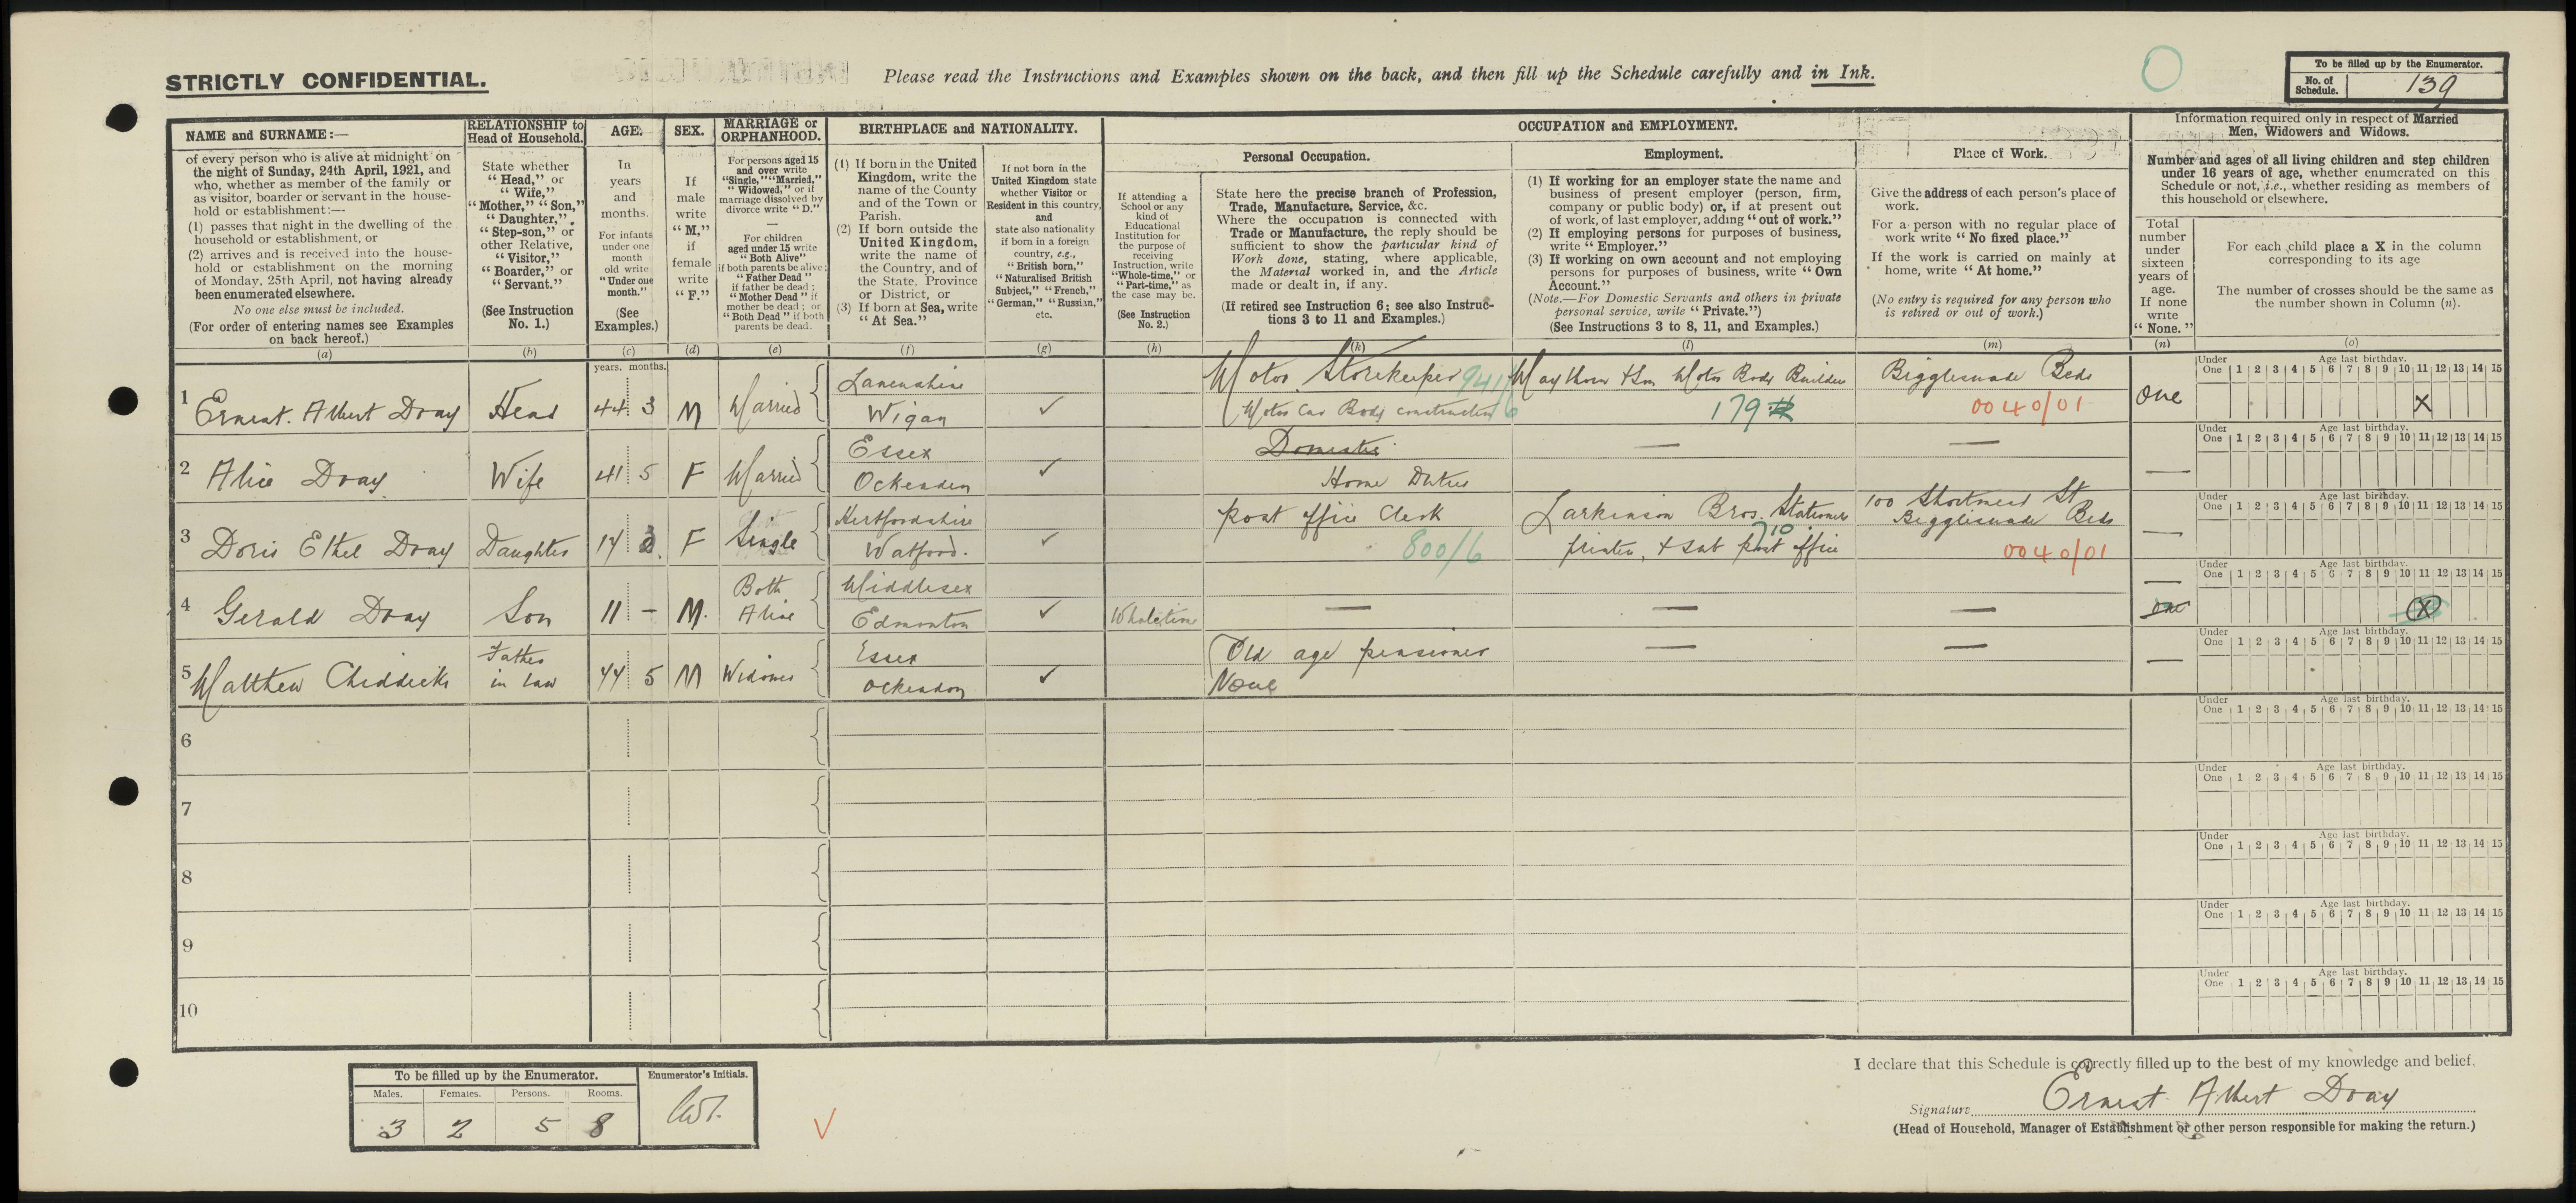 STRICTLY CONFIDENTIAL.
Please read the Instructions and Examples shown on the back, and then fill up the Schedule carefully and in Ink.
To be filled up by the Enumerator.
No. of Schedule. 139
NAME and SURNAME:—
of every person who is alive at midnight on
the night of Sunday, 24th April, 1921, and
who, whether as member of the family or
as visitor, boarder or servant in the house-
hold or establishment:—
(1) passes that night in the dwelling of the
household or establishment, or
(2) arrives and is received into the house-
hold or establishment on the morning
of Monday, 25th April, not having already
been enumerated elsewhere.
No one else must be included.
(For order of entering names see Examples
on back hereof.)
(a)
RELATIONSHIP to
Head of Household.
State whether
"Head," or
"Wife,"
"Mother," "Son,"
"Daughter,"
"Step-son," or
other Relative,
"Visitor,"
"Boarder," or
"Servant."
(See Instruction
No. 1.)
(b)
AGE.
In
years
and
months.
For infants
under one
month
old write
"Under one
month."
(See
Examples.)
(c)
SEX.
If
male
write
"M,"
if
female
write
"F."
(d)
MARRIAGE or
ORPHANHOOD.
For persons aged 15
and over write
"Single," "Married,"
"Widowed," or if
marriage dissolved by
divorce write "D."
—
For children
aged under 15 write
"Both Alive"
if both parents be alive;
"Father Dead"
if father be dead;
"Mother Dead" if
mother be dead; or
"Both Dead" if both
parents be dead.
(e)
BIRTHPLACE and NATIONALITY.
(1) If born in the United
Kingdom, write the
name of the County
and of the Town or
Parish.
(2) If born outside the
United Kingdom,
write the name of
the Country, and of
the State, Province
or District, or
(3) If born at Sea, write
"At Sea."
(f)
If not born in the
United Kingdom state
whether Visitor or
Resident in this country,
and
state also nationality
if born in a foreign
country, e.g.,
"British born,"
"Naturalised British
Subject," "French,"
"German," "Russian,"
etc.
(g)
OCCUPATION and EMPLOYMENT.
If attending a
School or any
kind of
Educational
Institution for
the purpose of
receiving
Instruction, write
"Whole-time," or
"Part-time," as
the case may be.
(See Instruction
No. 2.)
(h)
Personal Occupation.
State here the precise branch of Profession,
Trade, Manufacture, Service, &c.
Where the occupation is connected with
Trade or Manufacture, the reply should be
sufficient to show the particular kind of
Work done, stating, where applicable,
the Material worked in, and the Article
made or dealt in, if any.
(If retired see Instruction 6; see also Instruc-
tions 3 to 11 and Examples.)
(k)
Employment.
(1) If working for an employer state the name and
business of present employer (person, firm,
company or public body) or, if at present out
of work, of last employer, adding "out of work."
(2) If employing persons for purposes of business,
write "Employer."
(3) If working on own account and not employing
persons for purposes of business, write "Own
Account."
(Note.—For Domestic Servants and others in private
personal service, write "Private.")
(See Instructions 3 to 8, 11, and Examples.)
(l)
Place of Work.
Give the address of each person's place of
work.
For a person with no regular place of
work write "No fixed place."
If the work is carried on mainly at
home, write "At home."
(No entry is required for any person who
is retired or out of work.)
(m)
Information required only in respect of Married
Men, Widowers and Widows.
Number and ages of all living children and step children
under 16 years of age, whether enumerated on this
Schedule or not, i.e., whether residing as members of
this household or elsewhere.
Total
number
under
sixteen
years of
age.
If none
write
"None."
(n)
For each child place a X in the column
corresponding to its age
The number of crosses should be the same as
the number shown in Column (n).
(o)
years. months.
Under One Age last birthday. 1 2 3 4 5 6 7 8 9 10 11 12 13 14 15
1 Ernest. Albert Dray Head 44 3 M Married Lancashire Wigan ✓ Motor Storekeeper 941/6 Motor Car Body construction & Son Motor Body Builders 179 Biggleswade Beds 0040/01 One X
Under One Age last birthday. 1 2 3 4 5 6 7 8 9 10 11 12 13 14 15
2 Alice Dray Wife 41 5 F Married Essex Ockenden ✓ Domestic Home Duties — — —
Under One Age last birthday. 1 2 3 4 5 6 7 8 9 10 11 12 13 14 15
3 Doris Ethel Dray Daughter 17 F Single Hertfordshire Watford. ✓ post office Clerk 800/6 Larkinson Bros. Stationers printer, & sub post office 710 100 Shortmead St Biggleswade Beds 0040/01 —
Under One Age last birthday. 1 2 3 4 5 6 7 8 9 10 11 12 13 14 15
4 Gerald Dray Son 11 — M. Both Alive Middlesex Edmonton ✓ Whole time — — — — one X
Under One Age last birthday. 1 2 3 4 5 6 7 8 9 10 11 12 13 14 15
5 Matthew Chiddicks Father in law 77 5 M Widower Essex Ockendon ✓ Old age pensioner None — — —
Under One Age last birthday. 1 2 3 4 5 6 7 8 9 10 11 12 13 14 15
6
Under One Age last birthday. 1 2 3 4 5 6 7 8 9 10 11 12 13 14 15
7
Under One Age last birthday. 1 2 3 4 5 6 7 8 9 10 11 12 13 14 15
8
Under One Age last birthday. 1 2 3 4 5 6 7 8 9 10 11 12 13 14 15
9
Under One Age last birthday. 1 2 3 4 5 6 7 8 9 10 11 12 13 14 15
10
To be filled up by the Enumerator.
Males. Females. Persons. Rooms.
3 2 5 8
Enumerator's Initials.
I declare that this Schedule is correctly filled up to the best of my knowledge and belief.
Signature Ernest Albert Dray
(Head of Household, Manager of Establishment or other person responsible for making the return.)